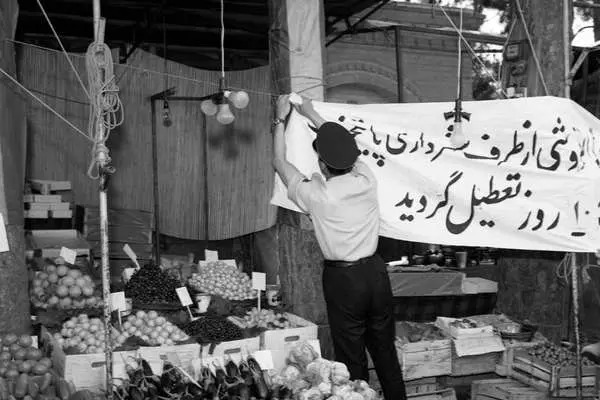 فروشی از طرف شهرداری پایتخت
۱۰ روز تعطیل گردید